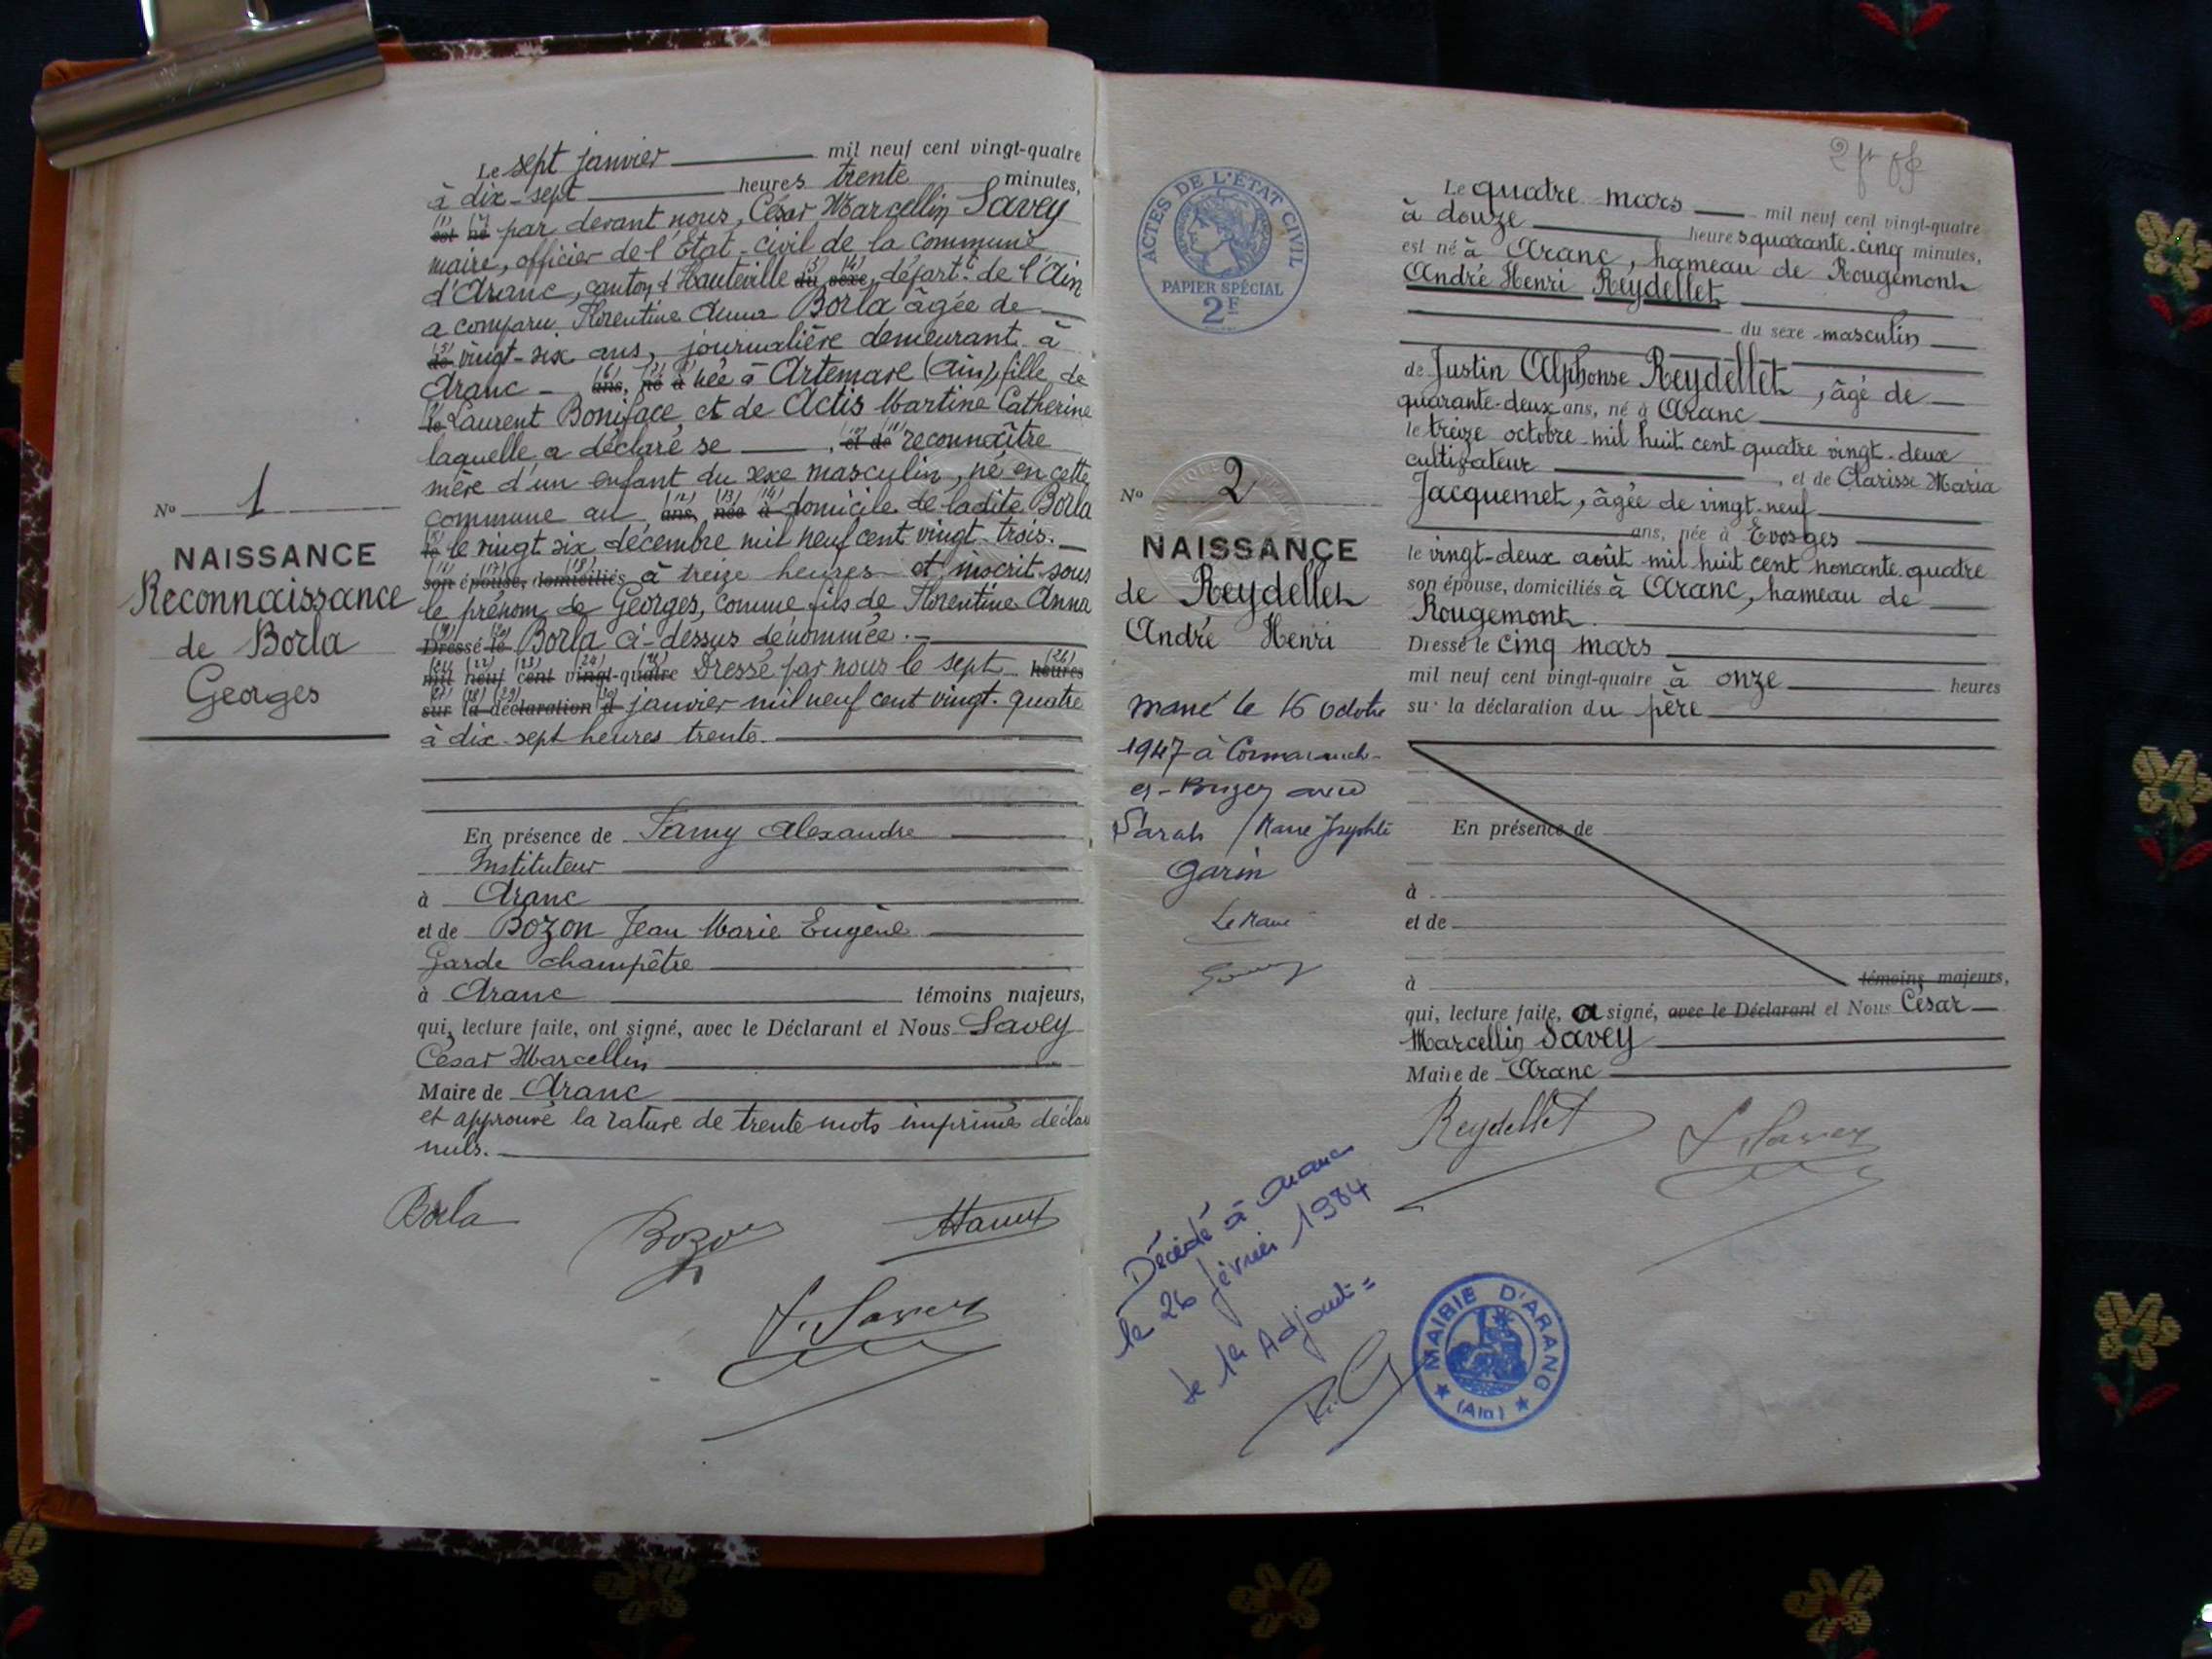 Le sept janvier mil neuf cent vingt-quatre
à dix-sept heures trente minutes,
(1) (2)
est né par devant nous, César Marcellin Savey
maire, officier de l'Etat-civil de la commune
(3) (4)
d'Aranc, canton d'Hauteville du sexe, départ.t de l'Ain
a comparu Florentine Anna Borla âgée de
(5)
de vingt-six ans, journalière demeurant à
(6) (7) (8)
Aranc - ans, né à née à Artemare (Ain), fille de
(9)
le Laurent Boniface, et de Actis Martine Catherine
(10) (11)
laquelle a déclaré se , et de reconnaître
mère d'un enfant du sexe masculin, né en cette
(12) (13) (14)
commune au ans, née à domicile de ladite Borla
(15)
le le vingt six décembre mil neuf cent vingt-trois.
(16) (17) (18)
son épouse, domiciliés à treize heures et inscrit sous
le prénom de Georges, comme fils de Florentine Anna
(19) (20)
Dressé le Borla ci-dessus dénommée.
(21) (22) (23) (24) (25) (26)
mil neuf cent vingt-quatre Dressé par nous le sept heures
(27) (28) (29) (30)
sur la déclaration d janvier mil neuf cent vingt-quatre
à dix-sept heures trente.
No 1
NAISSANCE
Reconnaissance
de Borla
Georges
En présence de Famy Alexandre
Instituteur
à Aranc
et de Bozon Jean Marie Eugène
Garde champêtre
à Aranc témoins majeurs,
qui, lecture faite, ont signé, avec le Déclarant et Nous Savey
César Marcellin
Maire de Aranc
et approuvé la rature de trente mots imprimés
nuls.
Borla
Bozon
Savey
2 fr
ACTES DE L'ÉTAT CIVIL
PAPIER SPÉCIAL
2F
Le quatre mars mil neuf cent vingt-quatre
à douze heures quarante-cinq minutes,
est né à Aranc, hameau de Rougemont
André Henri Reydellet
du sexe masculin
de Justin Alphonse Reydellet, âgé de
quarante-deux ans, né à Aranc
le treize octobre mil huit cent quatre vingt-deux
cultivateur , et de Clarisse Maria
Jacquemet, âgée de vingt-neuf
ans, née à Evosges
le vingt-deux août mil huit cent nonante-quatre
son épouse, domiciliés à Aranc, hameau de
Rougemont.
Dressé le cinq mars
mil neuf cent vingt-quatre à onze heures
sur la déclaration du père
No 2
NAISSANCE
de Reydellet
André Henri
marié le 16 octobre
1947 à Cormaranche-
en-Bugey avec
Sarah Marie Josephte
Garin
Le Maire
En présence de
à
et de
à témoins majeurs,
qui, lecture faite, a signé, avec le Déclarant et Nous César
Marcellin Savey
Maire de Aranc
Reydellet
Savey
Décédé à Aranc
le 26 février 1984
Le 1er Adjoint =
MAIRIE D'ARANC
(Ain)